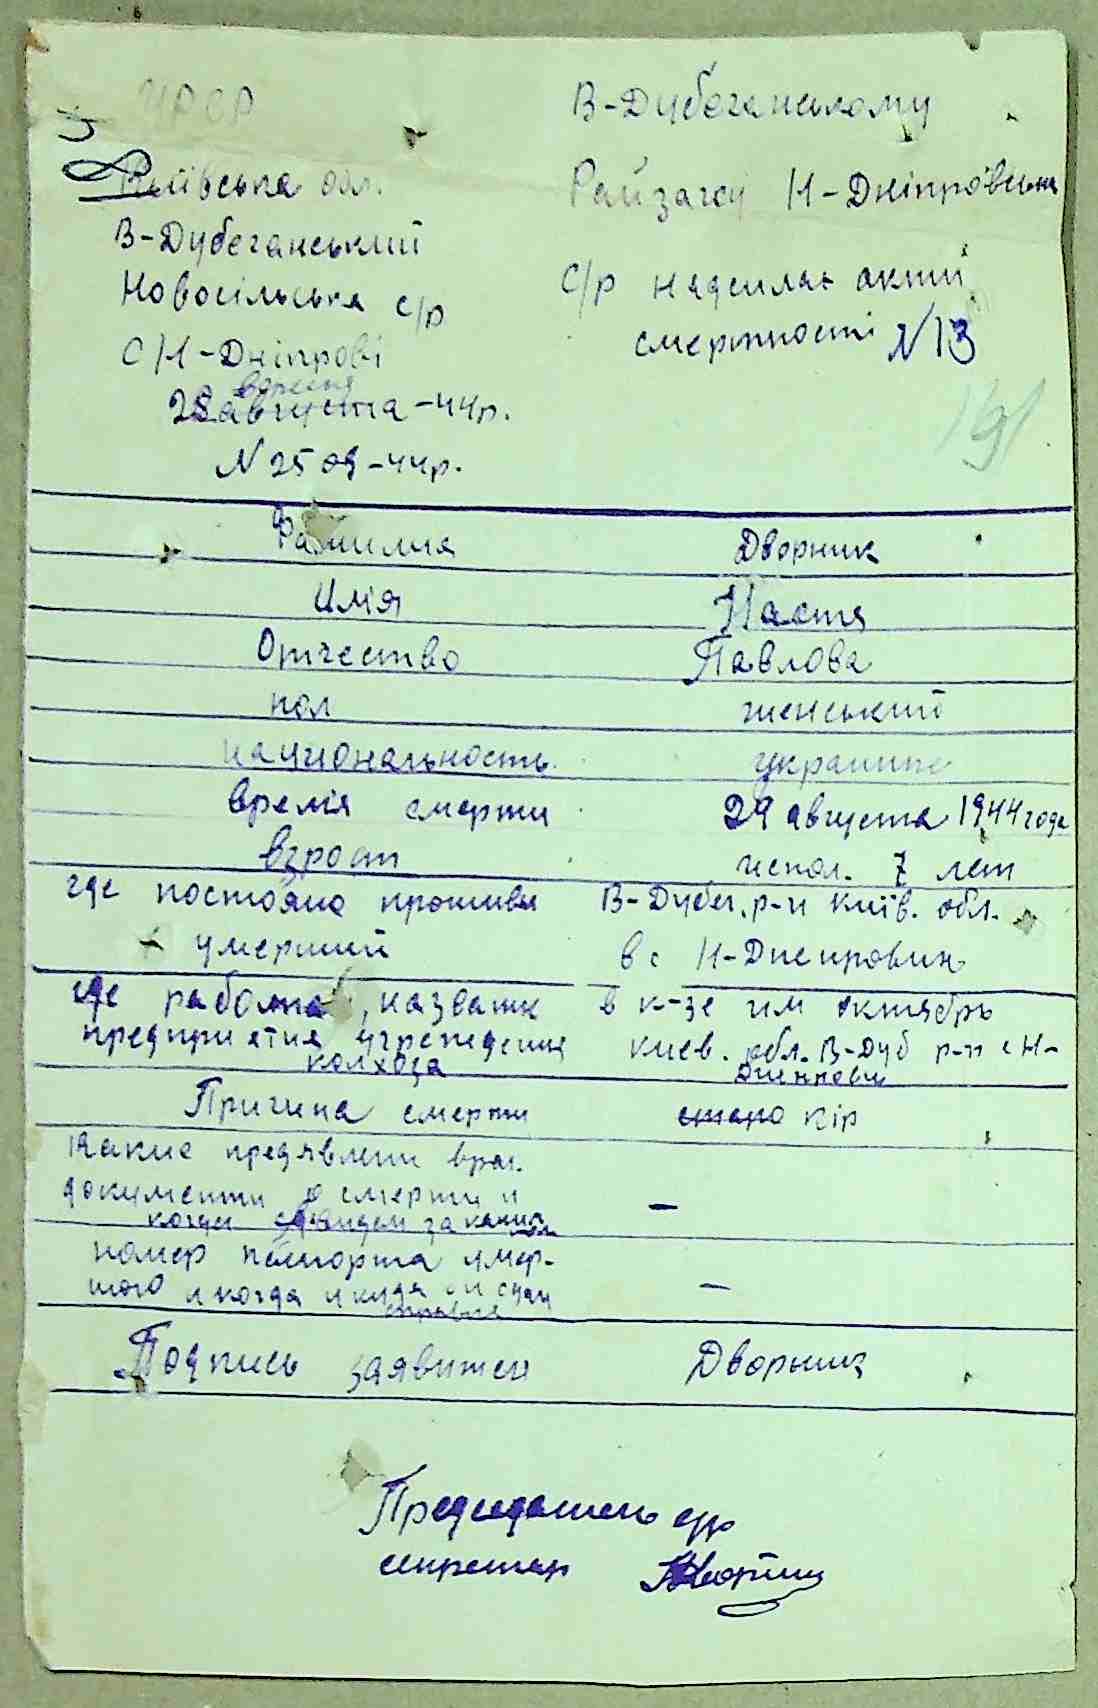 УРСР
Київська обл.
В-Дубечанський
Новосільська с/р
С/Н-Дніпрові
вересня
28 августа -44р.
N 25 09-44р.
В-Дубечанському
Райзагсу Н-Дніпровська
С/р надсилає акти
смертності N 13
191
Фамилия Дворник
Имія Настя
Отчество Павлова
пол женський
национальность украинка
времія смерти 29 августа 1944 года
взрост испол. 7 лет
где постояно прожива В-Дубеч. р-н Київ. обл.
умерший в с Н-Днепровик
где работа, назване в к-зе им октябрь
предприятия учреждения киев. обл. В-Дуб р-н с Н-
колхоза Днепрови
Причина смерти стапо кір
Какие предявлени врач.
документи о смерти и —
когда
номер пашпорта умер-
шого и когда и куда он сдан —
Подпись заявител Дворник
Председатель с/р
секретар